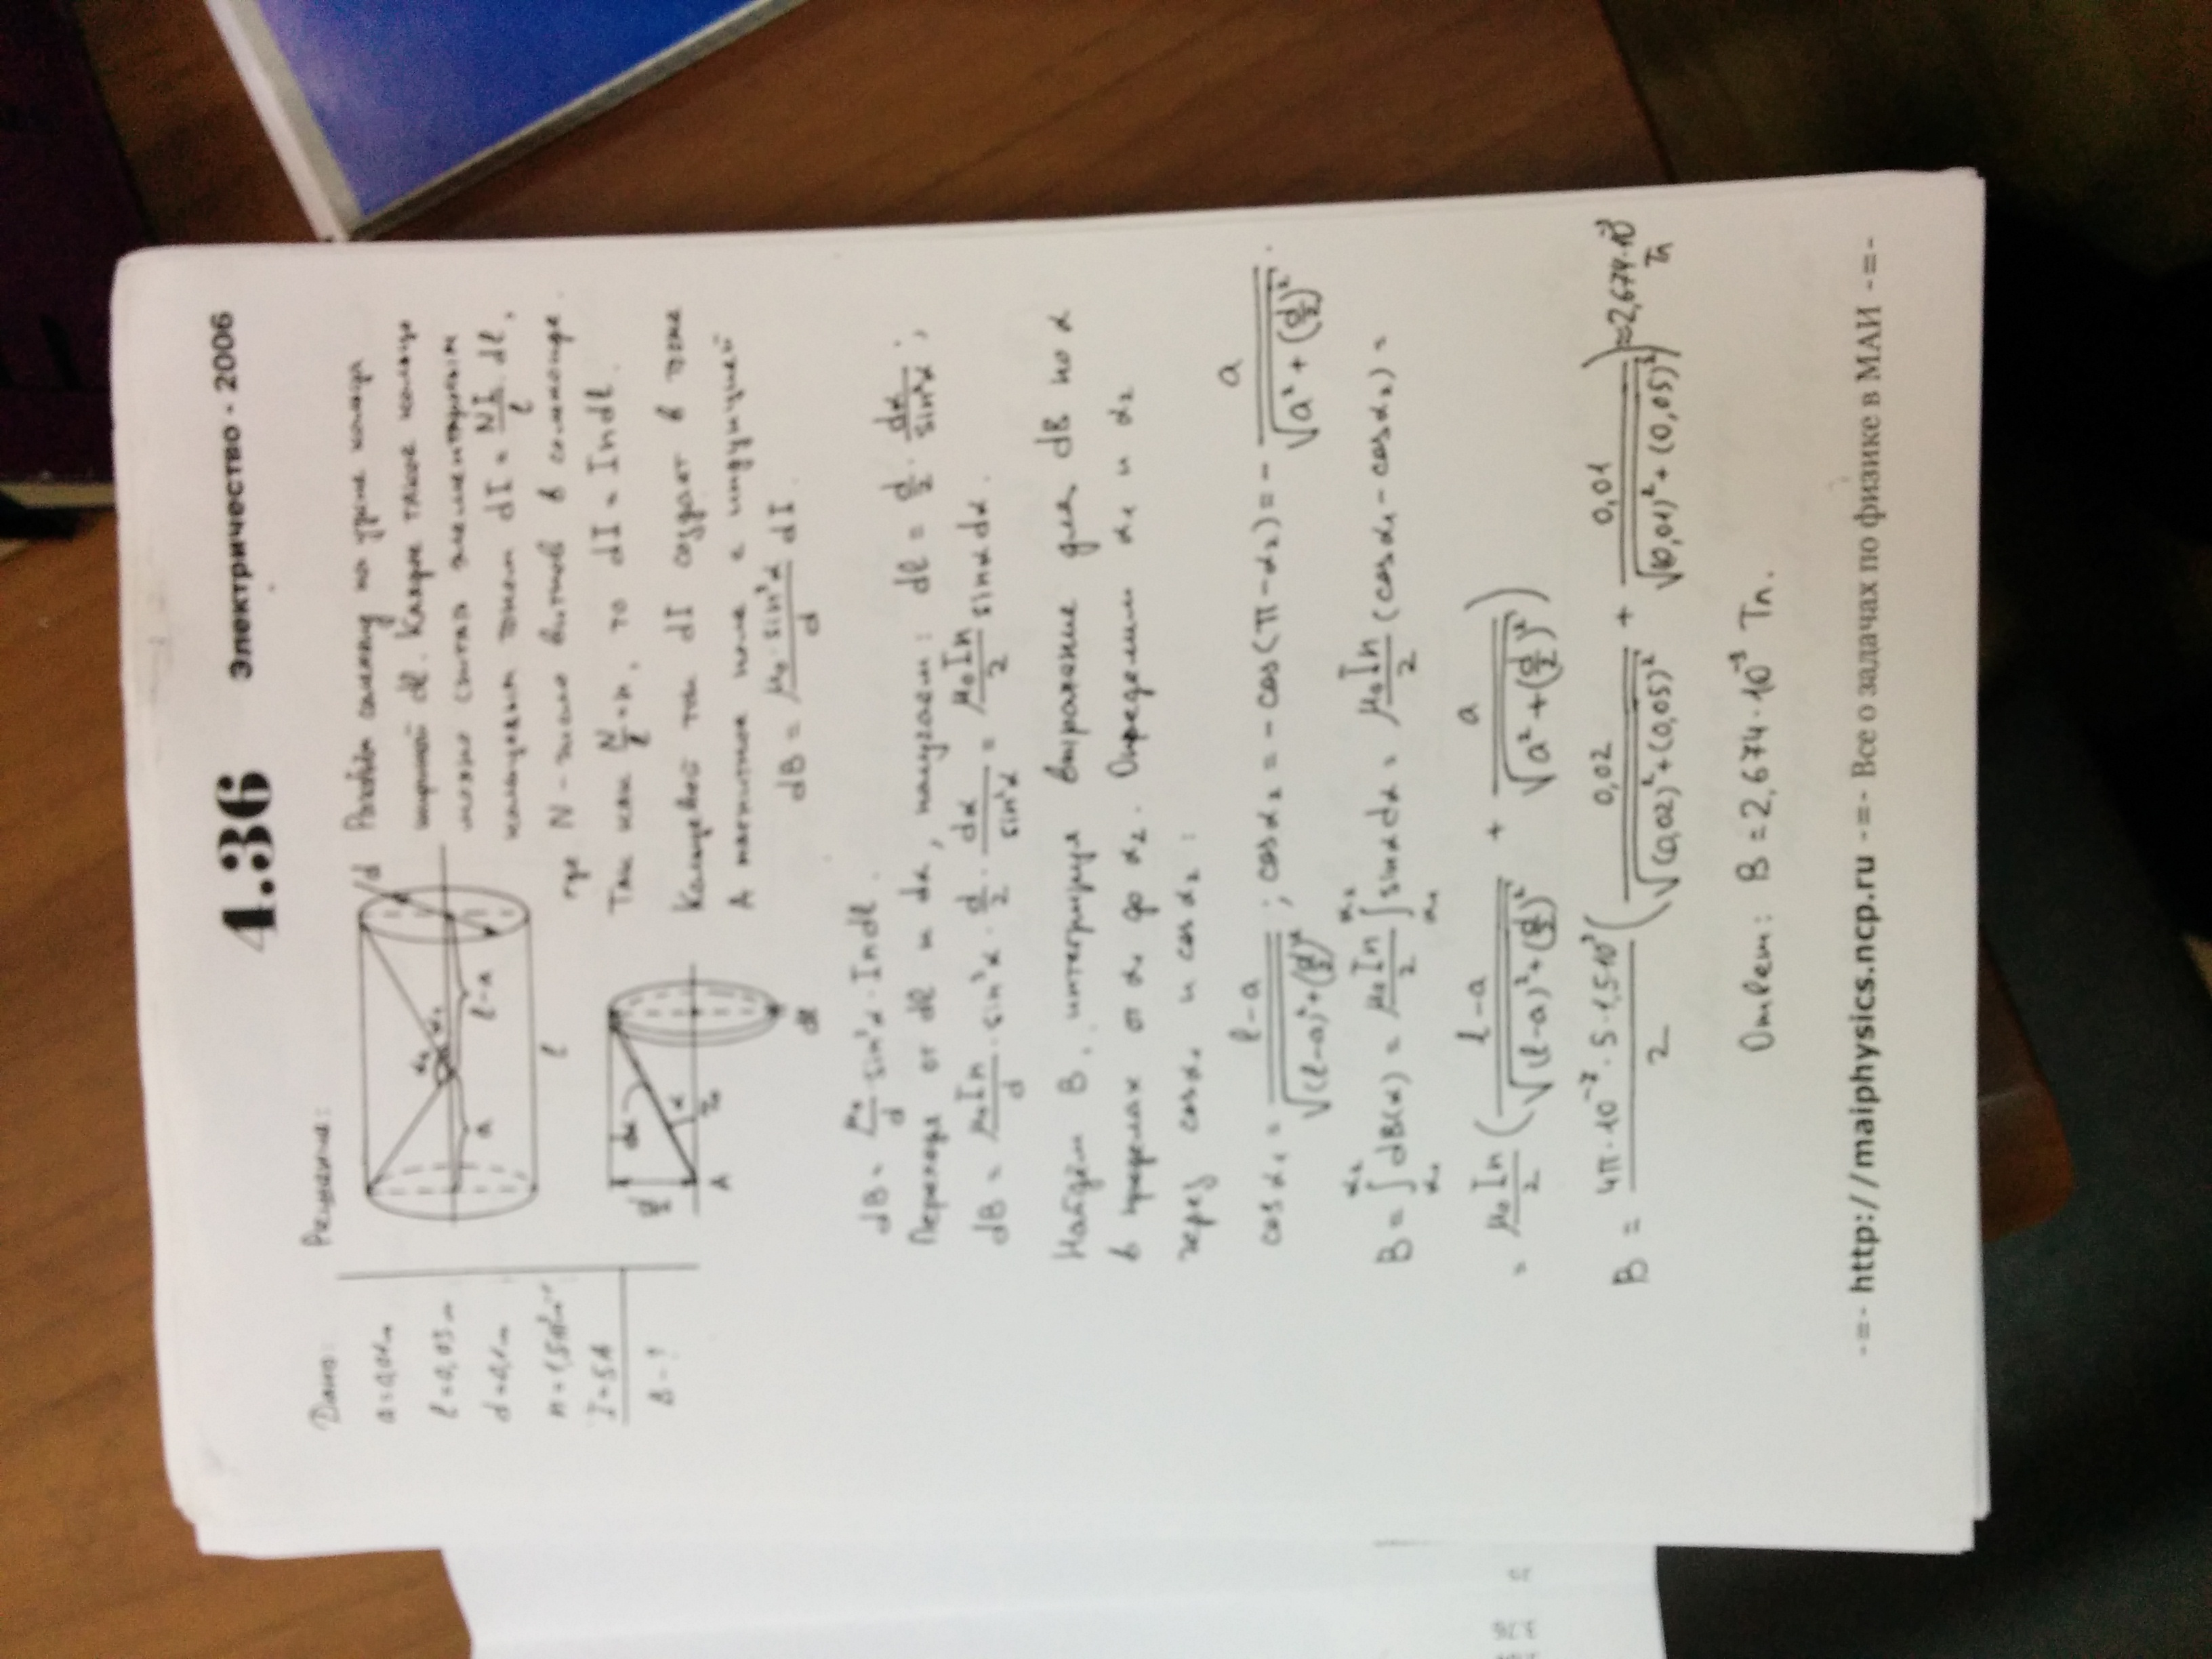 4.36 Электричество - 2006
Дано:
Решение:
a = 0,01м
l = 0,03м
d = 0,1м
n = 1,5·10³м⁻¹
I = 5А
B - ?
d
α₂ α₁
a l-a
l
d/2 dα α r₀
A dl
шириной dl. Каждое такое кольцо
можно считать элементарным
кольцевым током dI = NI/l dl,
где N - число витков в соленоиде.
Так как N/l = n, то dI = Indl.
Кольцевой ток dI создаёт в точке
A магнитное поле с индукцией
dB = μ₀·sin³α/d dI
dB = μ₀/d · sin³α · Indl.
Переходя от dl к dα, получаем: dl = d/2 · dα/sin²α;
dB = μ₀In/d · sin³α · d/2 · dα/sin²α = μ₀In/2 sinα dα.
Найдём B, интегрируя выражение для dB по α
в пределах от α₁ до α₂. Определим α₁ и α₂
через cosα₁ и cosα₂:
cosα₁ = (l-a)/√((l-a)²+(d/2)²); cosα₂ = -cos(π-α₂) = - a/√(a²+(d/2)²).
B = ∫_{α₁}^{α₂} dB(α) = μ₀In/2 ∫_{α₁}^{α₂} sinα dα = μ₀In/2 (cosα₁ - cosα₂) =
= μ₀In/2 ((l-a)/√((l-a)²+(d/2)²) + a/√(a²+(d/2)²))
B = 4π·10⁻⁷·5·1,5·10³/2 (0,02/√((0,02)²+(0,05)²) + 0,01/√((0,01)²+(0,05)²)) ≈ 2,674·10⁻³ Тл
Ответ: B = 2,674·10⁻³ Тл.
-=- http://maiphysics.ncp.ru -=- Все о задачах по физике в МАИ -=-